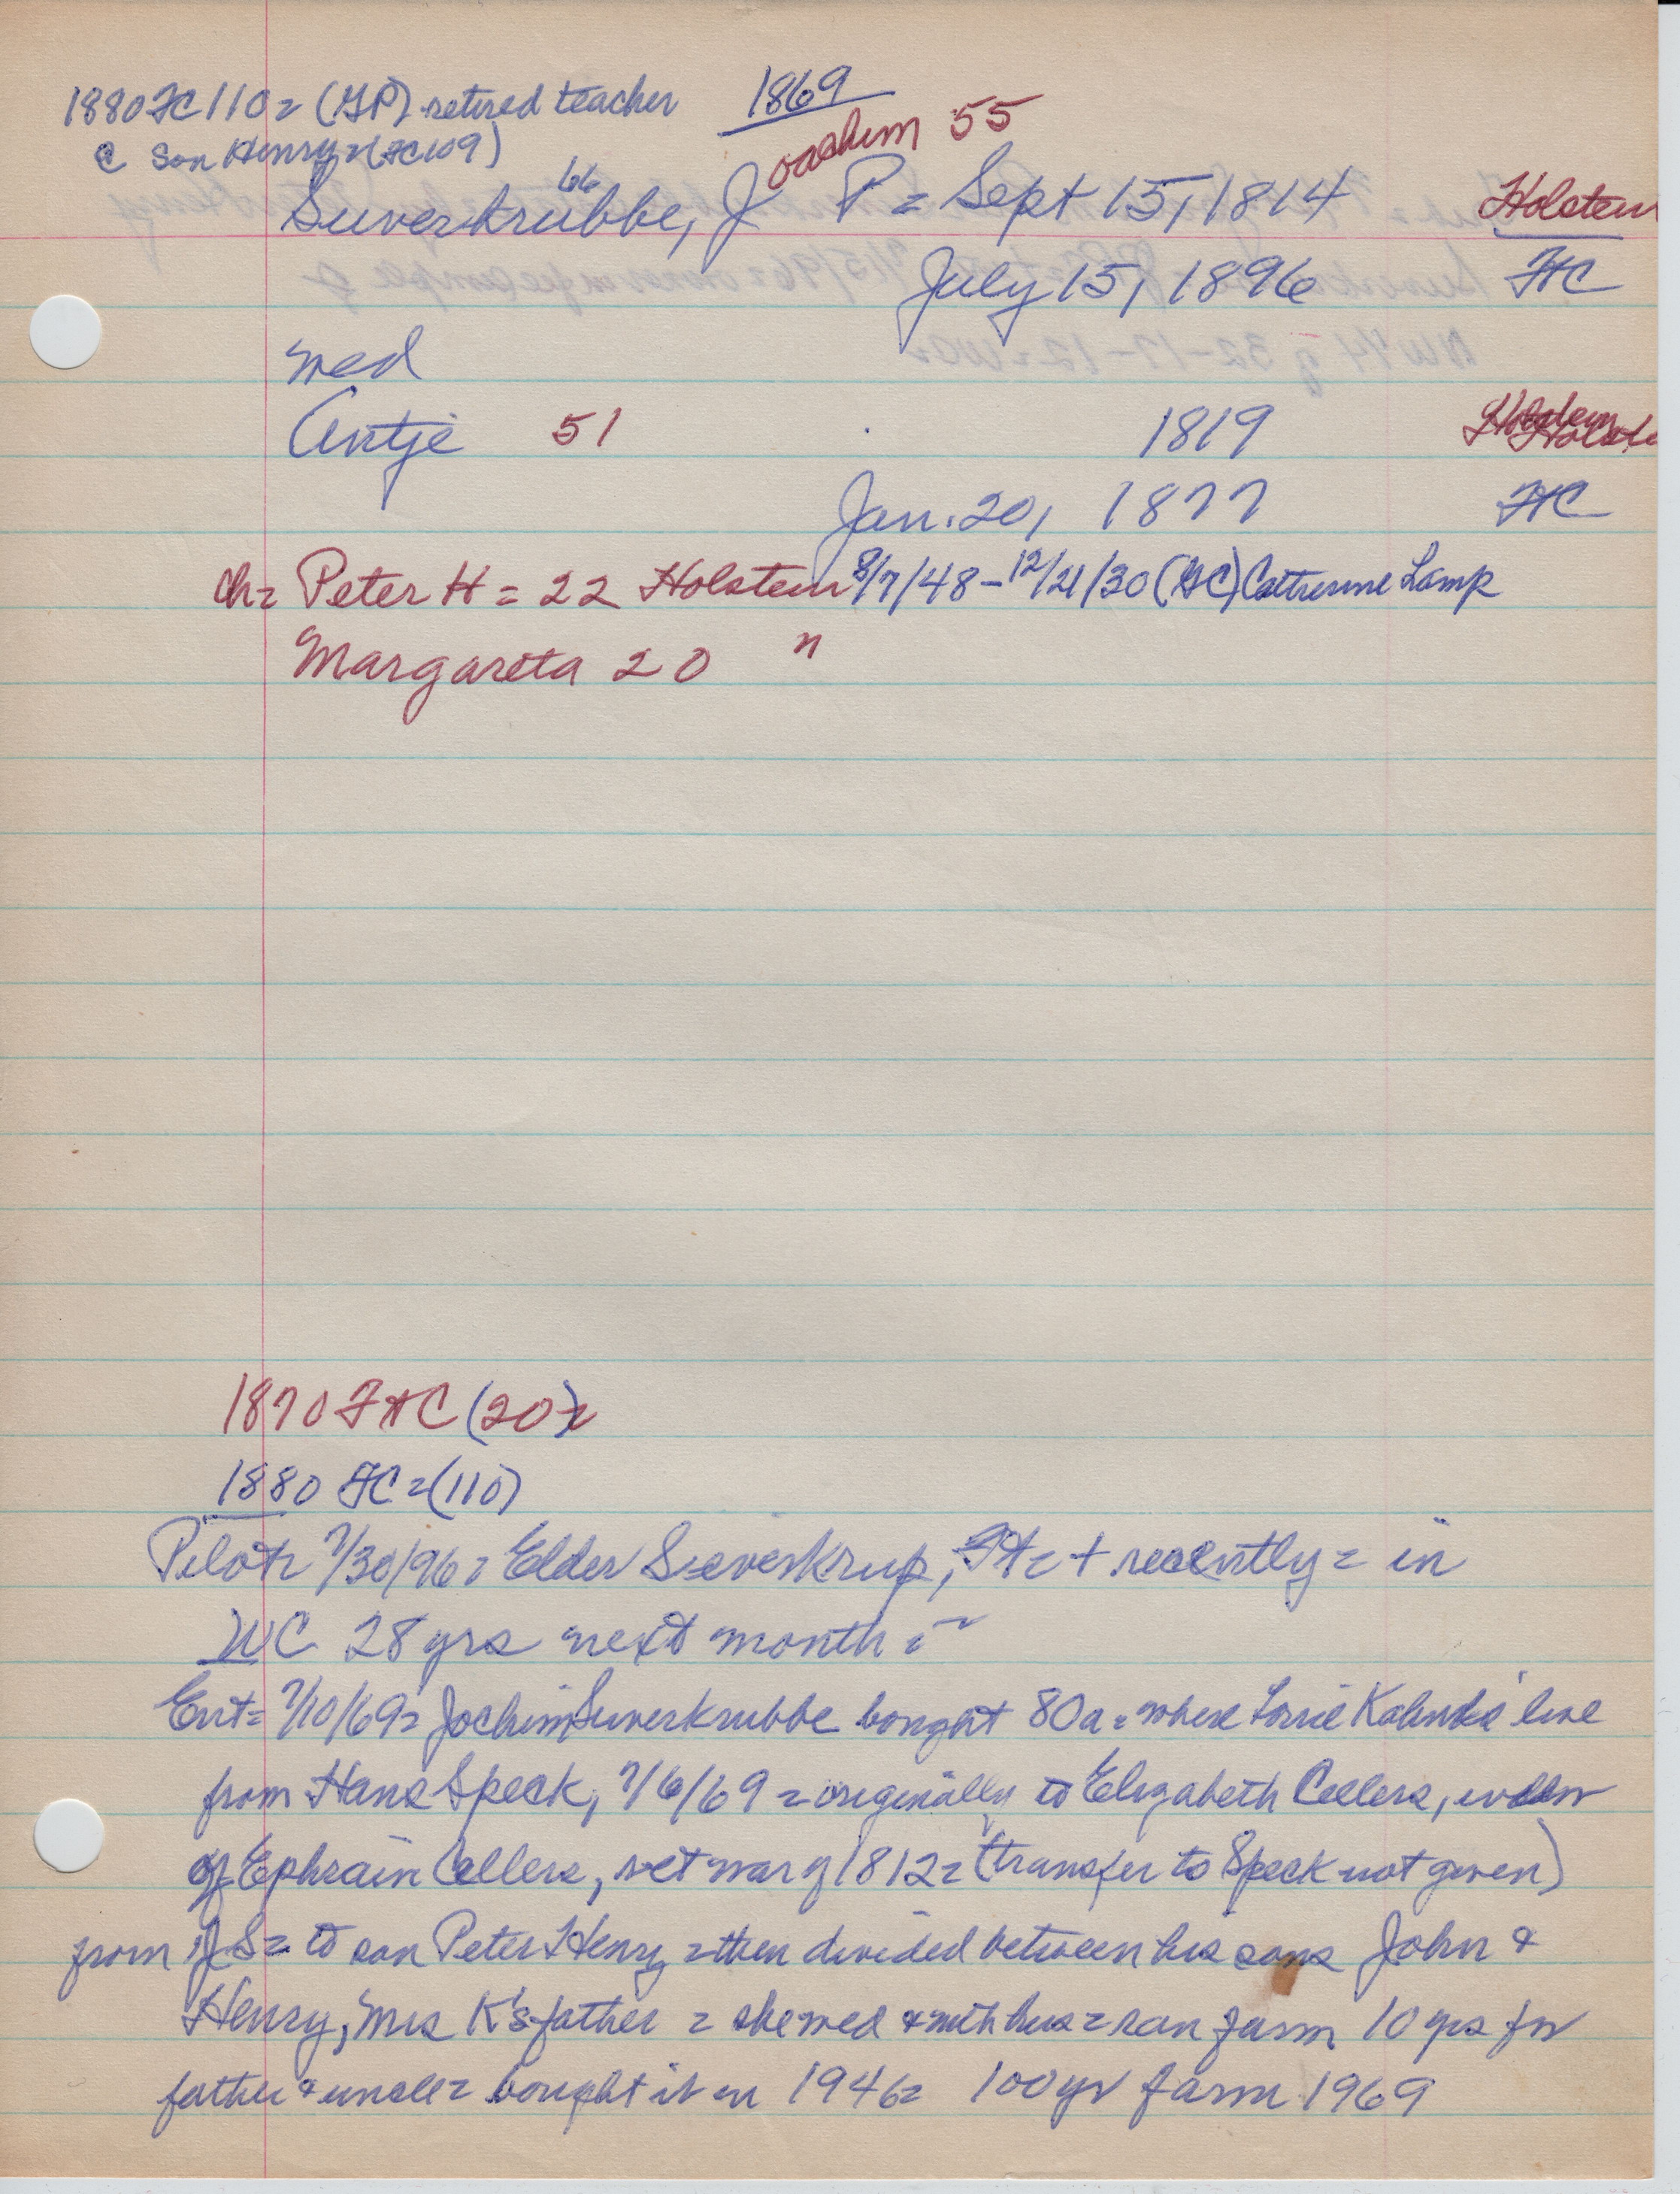 1880 FC 110 = (GP) retired teacher 1869
c son Henry = (FC 109) oachim 55
66
Suverkrubbe, J P = Sept 15, 1814 Holstein
July 15, 1896 FC
wed
Antje 51 1819 Holstein
Jan. 20, 1877 FC
ch = Peter H = 22 Holstein 8/7/48 - 12/21/30 (GC) Catherine Lamp
Margareta 20 "
1870 FtC (20) =
1880 FC = (110)
Pilot = 7/30/96 = Elder Sieverskrup, Ft = + recently = in
WC 28 yrs next month =
Ent = 7/10/69 = Jochim Suverkrubbe bought 80a = where Kahnks' live
from Hans Speck, 7/6/69 = originally to Elizabeth Cellers, widow
of Ephraim Cellers, vet war of 1812 = (transfer to Speck not given)
from JS = to son Peter Henry = then divided between his sons John &
Henry, Mrs K's father = she wed & with hus = ran farm 10 yrs for
father & uncle = bought it in 1946 = 100 yr farm 1969